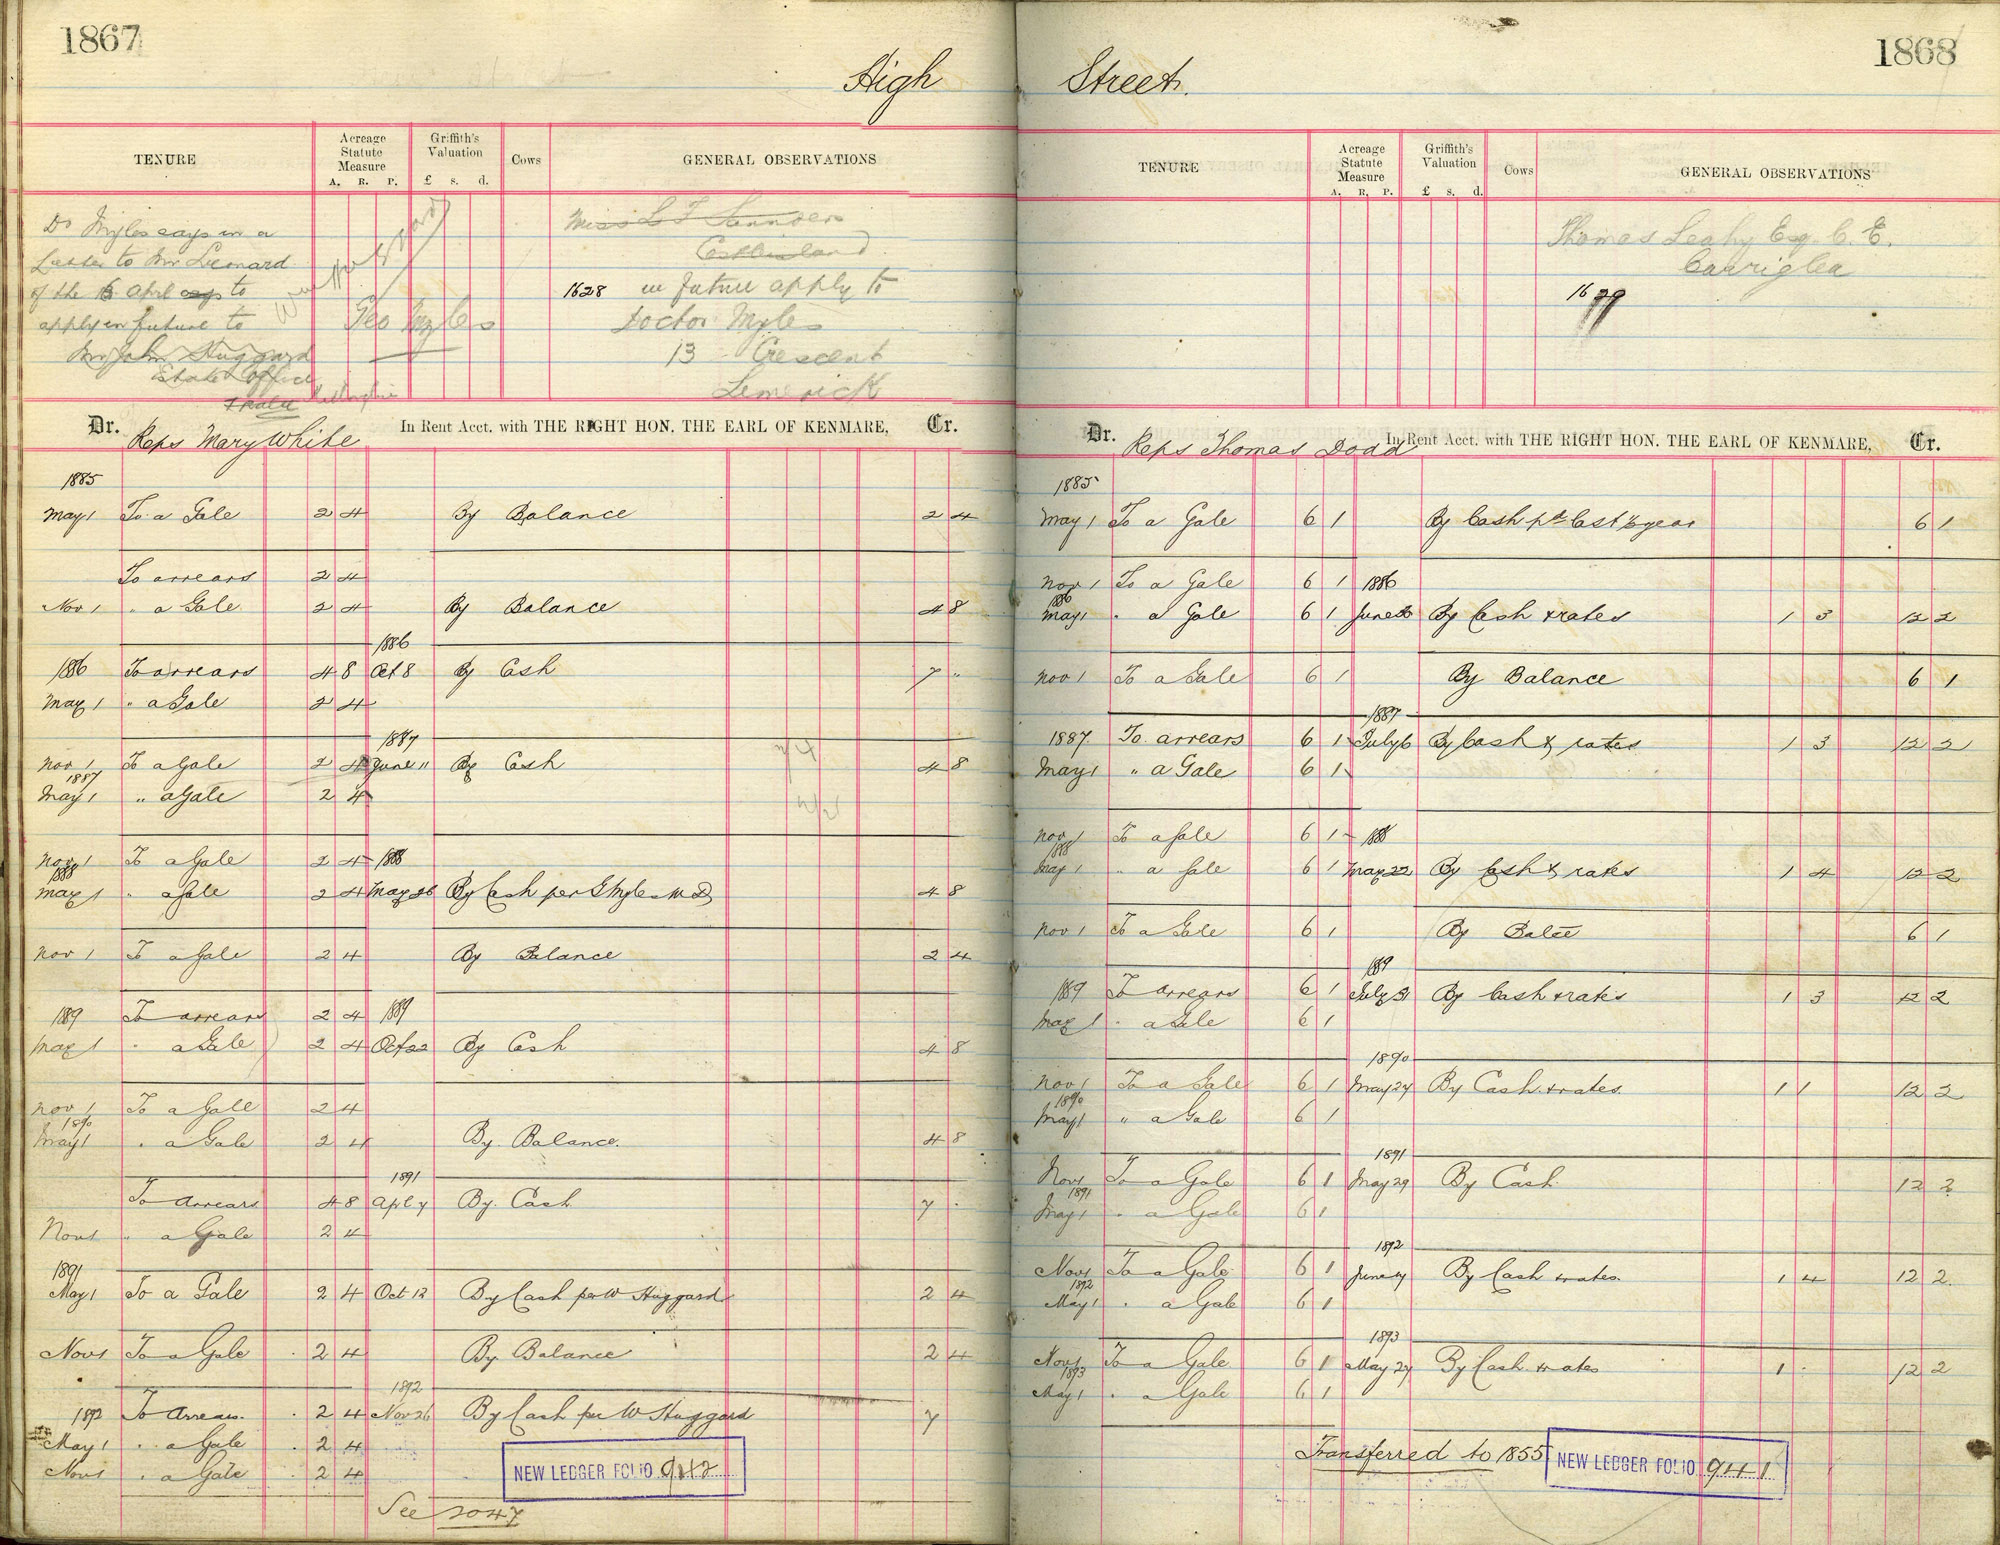 1867
High
TENURE
Acreage Statute Measure
A. R. P.
Griffith's Valuation
£ s. d.
Cows
GENERAL OBSERVATIONS
Dr Myles says in a
Letter to Mr Leonard
of the 16 April says to
apply in future to
Mr John Huggard
Estate Office
Tralee
Geo Myles
Miss L F Saunders
Castleisland
1628 in future apply to
Doctor Myles
13 Crescent
Limerick
Dr. Reps Mary White In Rent Acct. with THE RIGHT HON. THE EARL OF KENMARE, Cr.
1885
May 1 To a Gale 2 4 By Balance 2 4
To arrears 2 4
Nov 1 " a Gale 2 4 By Balance 4 8
1886
1886 To arrears 4 8 Oct 8 By Cash 7 "
May 1 " a Gale 2 4
1887
Nov 1 To a Gale 2 4 June 11 By Cash 4 8
1887
May 1 " a Gale 2 4
Nov 1 To a Gale 2 4 1888
1888
May 1 " a Gale 2 4 May 26 By Cash per G Myles M D 4 8
Nov 1 To a Gale 2 4 By Balance 2 4
1889 To arrears 2 4 1889
May 1 " a Gale 2 4 Oct 22 By Cash 4 8
Nov 1 To a Gale 2 4
1890
May 1 " a Gale 2 4 By Balance. 4 8
1891
To Arrears 4 8 Apl 7 By Cash 7 "
Nov 1 " a Gale 2 4
1891
May 1 To a Gale 2 4 Oct 12 By Cash per W Huggard 2 4
Nov 1 To a Gale 2 4 By Balance 2 4
1892
1892 To Arrears 2 4 Nov 26 By Cash per W Huggard 7
May 1 " a Gale 2 4
Nov 1 " a Gale 2 4
NEW LEDGER FOLIO 942
See 2047
1868
Street.
TENURE
Acreage Statute Measure
A. R. P.
Griffith's Valuation
£ s. d.
Cows
GENERAL OBSERVATIONS
Thomas Leahy Esq. C. E.
Carriglea
1629
Dr. Reps Thomas Dodd In Rent Acct. with THE RIGHT HON. THE EARL OF KENMARE, Cr.
1885
May 1 To a Gale 6 1 By Cash pd last ½ year 6 1
Nov 1 To a Gale 6 1 1886
1886
May 1 " a Gale 6 1 June By Cash & rates 1 3 12 2
Nov 1 To a Gale 6 1 By Balance 6 1
1887
1887 To arrears 6 1 July 6 By Cash & rates 1 3 12 2
May 1 " a Gale 6 1
Nov 1 To a Gale 6 1 1888
1888
May 1 " a Gale 6 1 May 22 By Cash & rates 1 4 12 2
Nov 1 To a Gale 6 1 By Balce 6 1
1889
1889 To arrears 6 1 July 31 By Cash & rates 1 3 12 2
May 1 " a Gale 6 1
1890
Nov 1 To a Gale 6 1 May 27 By Cash & rates. 1 1 12 2
1890
May 1 " a Gale 6 1
1891
Nov 1 To a Gale 6 1 May 29 By Cash 12 2
1891
May 1 " a Gale 6 1
1892
Nov 1 To a Gale 6 1 June By Cash & rates. 1 4 12 2
1892
May 1 " a Gale 6 1
1893
Nov 1 To a Gale 6 1 May 27 By Cash & rates 1 " 12 2
1893
May 1 " a Gale 6 1
Transferred to 1855
NEW LEDGER FOLIO 941